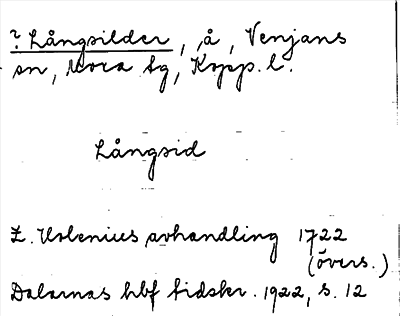 ? Långsilder, å, Venjans
sn, Mora tg, Kopp. l.
Långsid
Z. Holenius avhandling 1722
(övers.)
Dalarnas hbf tidskr. 1922, s. 12